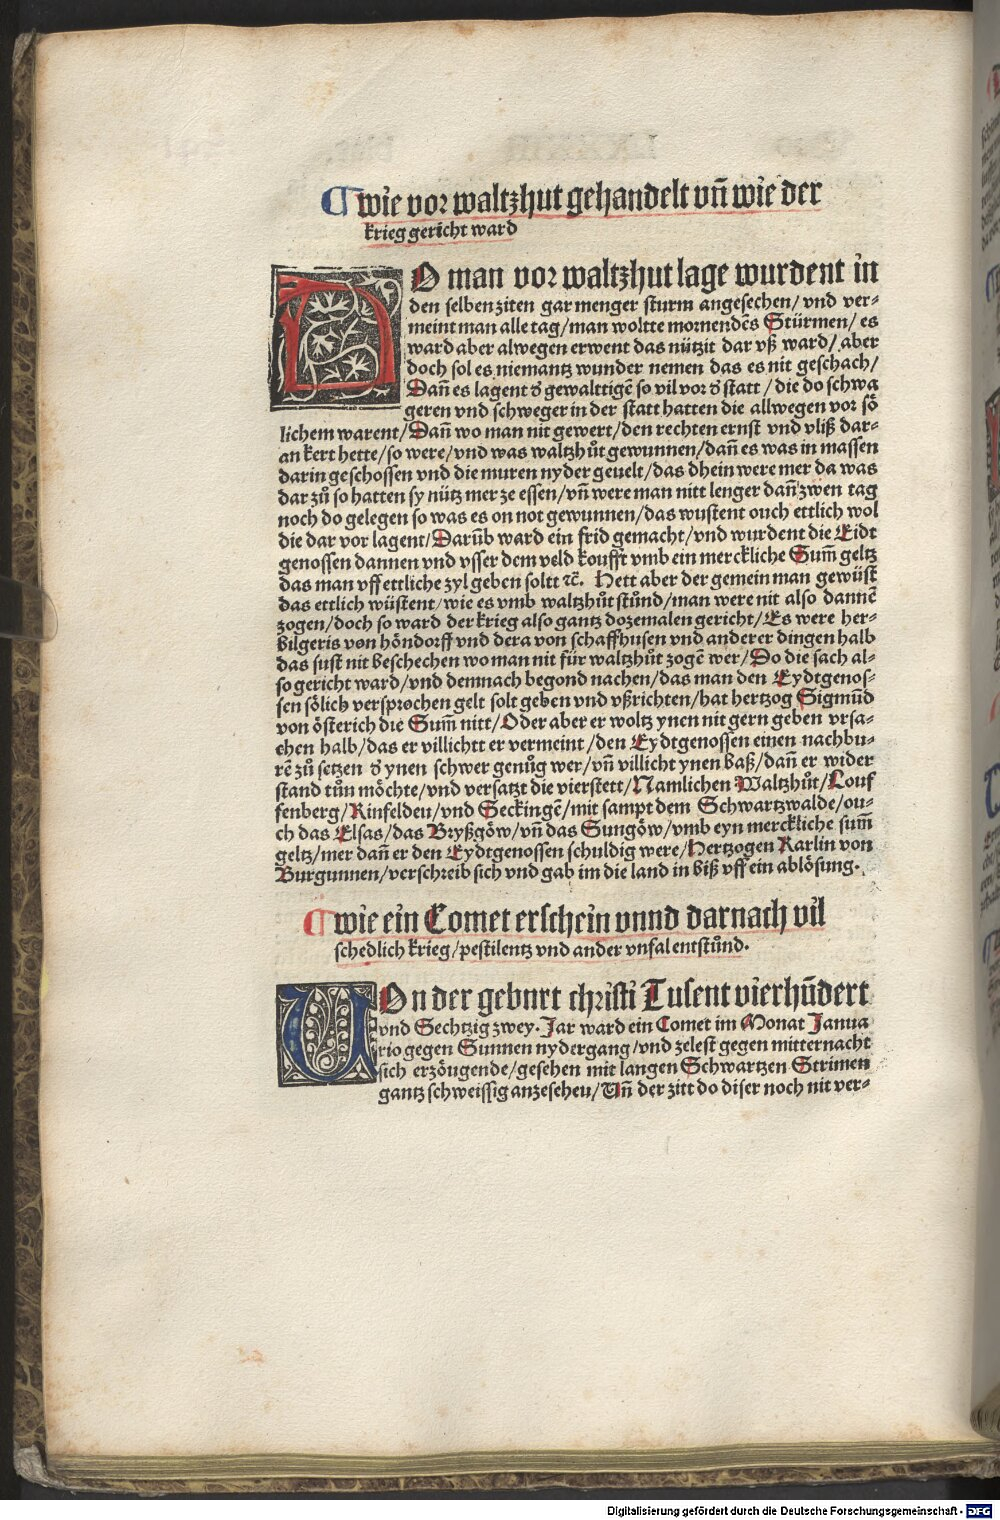 ¶ wie vor waltzhut gehandelt vñ wie der
krieg gericht ward
DO man vor waltzhut lage wurdent in
den selben ziten gar menger sturm angesechen/ vnd ver⸗
meint man alle tag/ man woltte mornendẽs Stürmen/ es
ward aber alwegen erwent das nützit dar vß ward/ aber
doch sol es niemantz wunder nemen das es nit geschach/
Dañ es lagent d̕ gewalttigẽ so vil vor d̕ statt / die do schwa
geren vnd schweger in der statt hatten die allwegen vor sö
lichem warent/ Dañ wo man nit gewert/ den rechten ernst vnd vliß dar⸗
an kert hette/ so were/ vnd was waltzhůt gewunnen/ dañ es was in massen
darin geschossen vnd die muren nyder geuelt/ das dhein were mer da was
dar zů so hatten sy nütz mer ze essen/ vñ were man nitt lenger dañ zwen tag
noch do gelegen so was es on not gewunnen/ das wustent ouch ettlich wol
die dar vor lagent/ Darũb ward ein frid gemacht/ vnd wurdent die Eidt
genossen dannen vnd vsser dem veld koufft vmb ein merckliche Sum̃ geltz
das man vff ettliche zyl geben soltt ꝛc̃. Hett aber der gemein man gewüst
das ettlich wüstent/ wie es vmb waltzhůt stůnd/ man were nit also dannẽ
zogen/ doch so ward der krieg also gantz dozemalen gericht/ Es were her⸗
bilgeris von höndorff vnd dera von schaffhusen vnd anderer dingen halb
das sust nit beschechen wo man nit für waltzhůt zogẽ wer/ Do die sach al⸗
so gericht ward/ vnd demnach begond nachen/ das man den Eydtgenos⸗
sen sölich versprochen gelt solt geben vnd vßrichten/ hat hertzog Sigmũd
von österich die Sum̃ nitt/ Oder aber er woltz ynen nit gern geben vrsa⸗
chen halb/ das er villichtt er vermeint/ den Eydtgenossen einen nachbu⸗
rẽ zů setzen d̕ ynen schwer genůg wer/ vñ villicht ynen baß/ dañ er wider
stand tůn möchte/ vnd versatzt die vier stett/ Namlichen Waltzhůt/ Louf
fenberg/ Rinfelden/ vnd Seckingẽ/ mit sampt dem Schwartzwalde/ ou⸗
ch das Elsas/ das Bryßgöw/ vñ das Sungöw/ vmb eyn merckliche sum̃
geltz/ mer dañ er den Eydtgenossen schuldig were/ Hertzogen Karlin von
Burgunnen/ verschreib sich vnd gab im die land in biß vff ein ablösung.
¶ wie ein Comet erschein vnnd darnach vil
schedlich krieg/ pestilentz vnd ander vnfal entstůnd.
VOn der geburt christi Tusent vierhũdert
vnd Sechtzig zwey. Jar ward ein Comet im Monat Janua
rio gegen Sunnen nydergang/ vnd zelest gegen mitternacht
sich erzöugende/ gesehen mit langen Schwartzen Strimen
gantz schweissig anzesehen/ Vñ der zitt do diser noch nit ver⸗
Digitalisierung gefördert durch die Deutsche Forschungsgemeinschaft - DFG